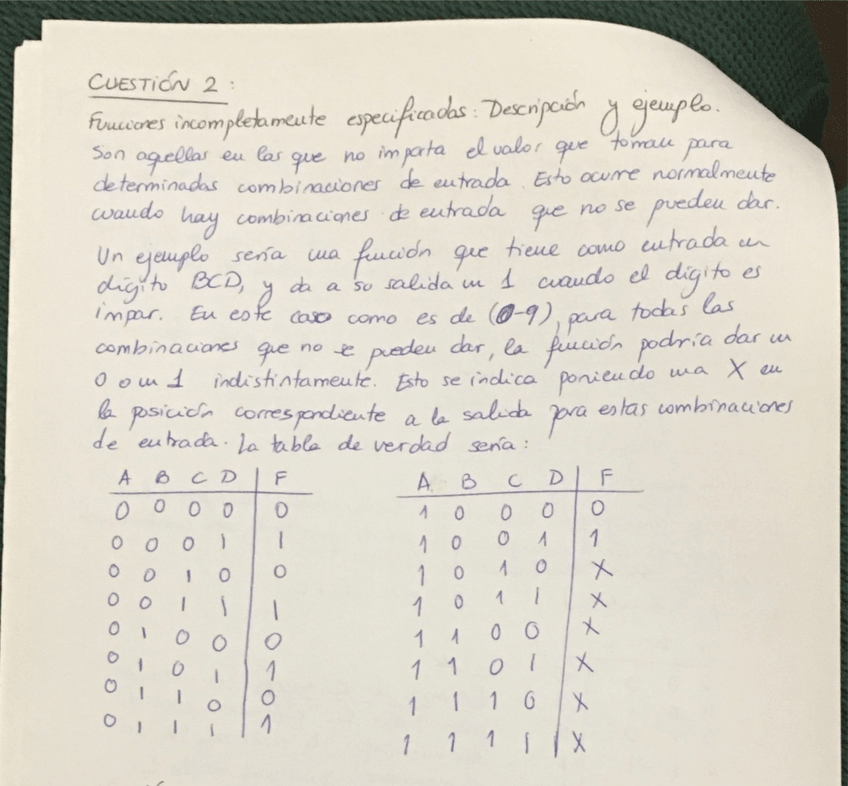 CUESTIÓN 2 :
Funciones incompletamente especificadas: Descripción y ejemplo.
Son aquellas en las que no importa el valor que toman para
determinadas combinaciones de entrada. Esto ocurre normalmente
cuando hay combinaciones de entrada que no se pueden dar.
Un ejemplo sería una función que tiene como entrada un
dígito BCD, y da a su salida un 1 cuando el dígito es
impar. En este caso como es de (0-9), para todas las
combinaciones que no se pueden dar, la función podría dar un
0 o un 1 indistintamente. Esto se indica poniendo una X en
la posición correspondiente a la salida para estas combinaciones
de entrada. La tabla de verdad sería :
A B C D F
0 0 0 0 0
0 0 0 1 1
0 0 1 0 0
0 0 1 1 1
0 1 0 0 0
0 1 0 1 1
0 1 1 0 0
0 1 1 1 1
A B C D F
1 0 0 0 0
1 0 0 1 1
1 0 1 0 X
1 0 1 1 X
1 1 0 0 X
1 1 0 1 X
1 1 1 0 X
1 1 1 1 X